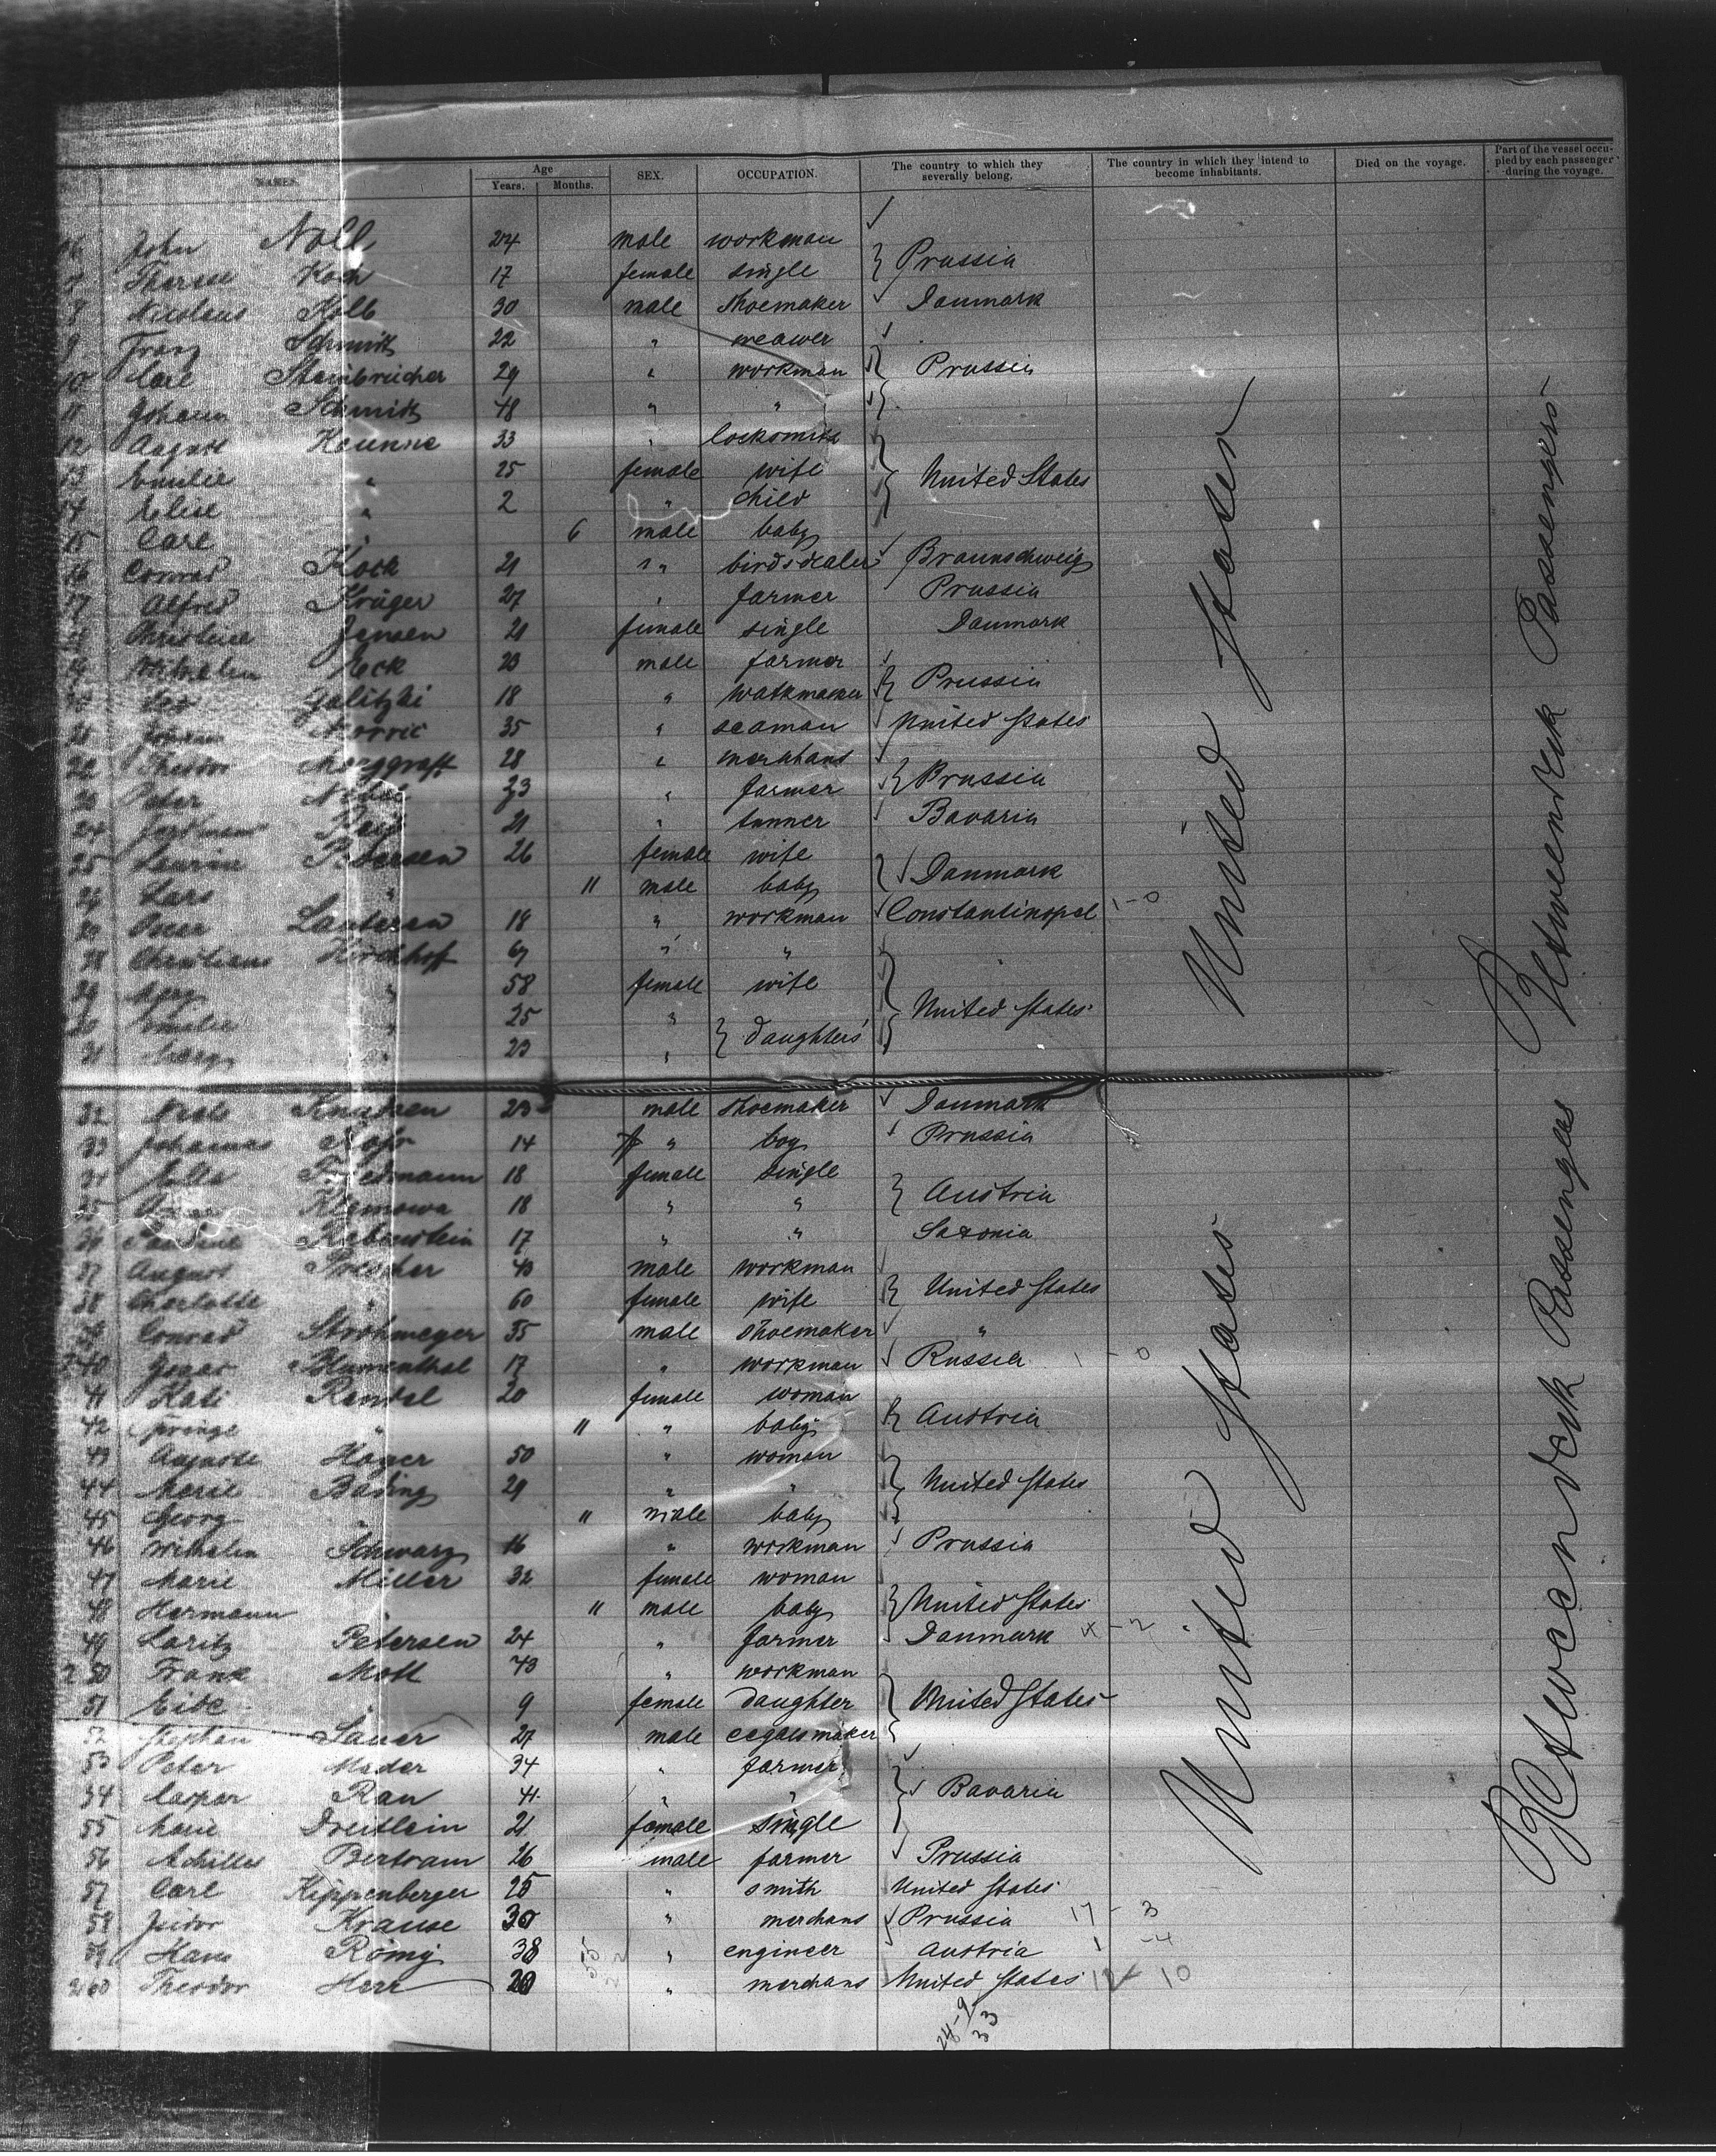 NAMES. Age Years. Months. SEX. OCCUPATION. The country to which they severally belong. The country in which they intend to become inhabitants. Died on the voyage. Part of the vessel occupied by each passenger during the voyage.
John Noll 24 male workman
Therese Koch 17 female single Prussia
Nicolaus Kolb 30 male shoemaker Danmark
9 Franz Schmitt 22 " weawer
10 Carl Steinbrücher 29 " workman Prussia
11 Johann Schmitt 48 " "
12 August Heunne 33 " locksmith
13 Emilie " 25 female wife United States
14 Elise " 2 " child
15 Carl " 6 male baby
16 Conrad Kock 21 " birdsdealer Braunschweig
17 Alfred Krüger 27 " farmer Prussia
18 Christine Jensen 21 female single Danmark
19 Wilhelm Heck 23 male farmer
Galitzki 18 " Prussia
21 Johann 35 " seaman United States
22 Theodor Marggraff 28 " merchant
23 Peter 23 " farmer Prussia
24 21 " tanner Bavaria
25 Laurine Petersen 26 female wife
26 Lars " 11 male baby Danmark
18 " workman Constantinopel 1-0
28 Christians Kirchhoff 67 " "
29 " 58 female wife
30 Emilie " 25 " daughters United States
31 Mary " 23 "
32 Niels Knudsen 23 male shoemaker Danmark
33 Johannes 14 " boy Prussia
34 Julla Friedmann 18 female single
35 Klemowa 18 " " Austria
36 Pauline Rabenstein 17 " " Saxonia
37 August Prescher 43 male workman
38 Charlotte " 60 female wife United States
39 Conrad Strohmeyer 35 male shoemaker "
240 Blumenthal 17 " workman Russia 1-0
41 Kati Rendel 20 female woman
42 " 11 " baby Austria
43 Auguste Hoyer 50 " woman
44 Marie Bading 29 " " United States
45 Georg " 11 male baby
46 Wilhelm Schwarz 16 " workman Prussia
47 Marie Miller 32 female woman
48 Hermann " 11 male baby United States
49 Laritz Petersen 24 " farmer Danmark 4-2
250 Frank Moll 43 " workman
51 Elise " 9 female daughter United States
52 Stephan Sauer 27 male cegarsmaker
53 Peter Meder 34 " farmer
54 Caspar Rau 41 " " Bavaria
55 Marie Dreitlein 21 female single
56 Achilles Bertram 26 male farmer Prussia
57 Carl Kippenberger 25 " smith United States
58 Isidor Krause 30 " merchans Prussia 17-3
59 Hans Römy 38 " engineer Austria 1-4
260 Theodor Herr 20 " merchans United States 10
United States
United States
Betweendeck Passengers
Betweendeck Passengers